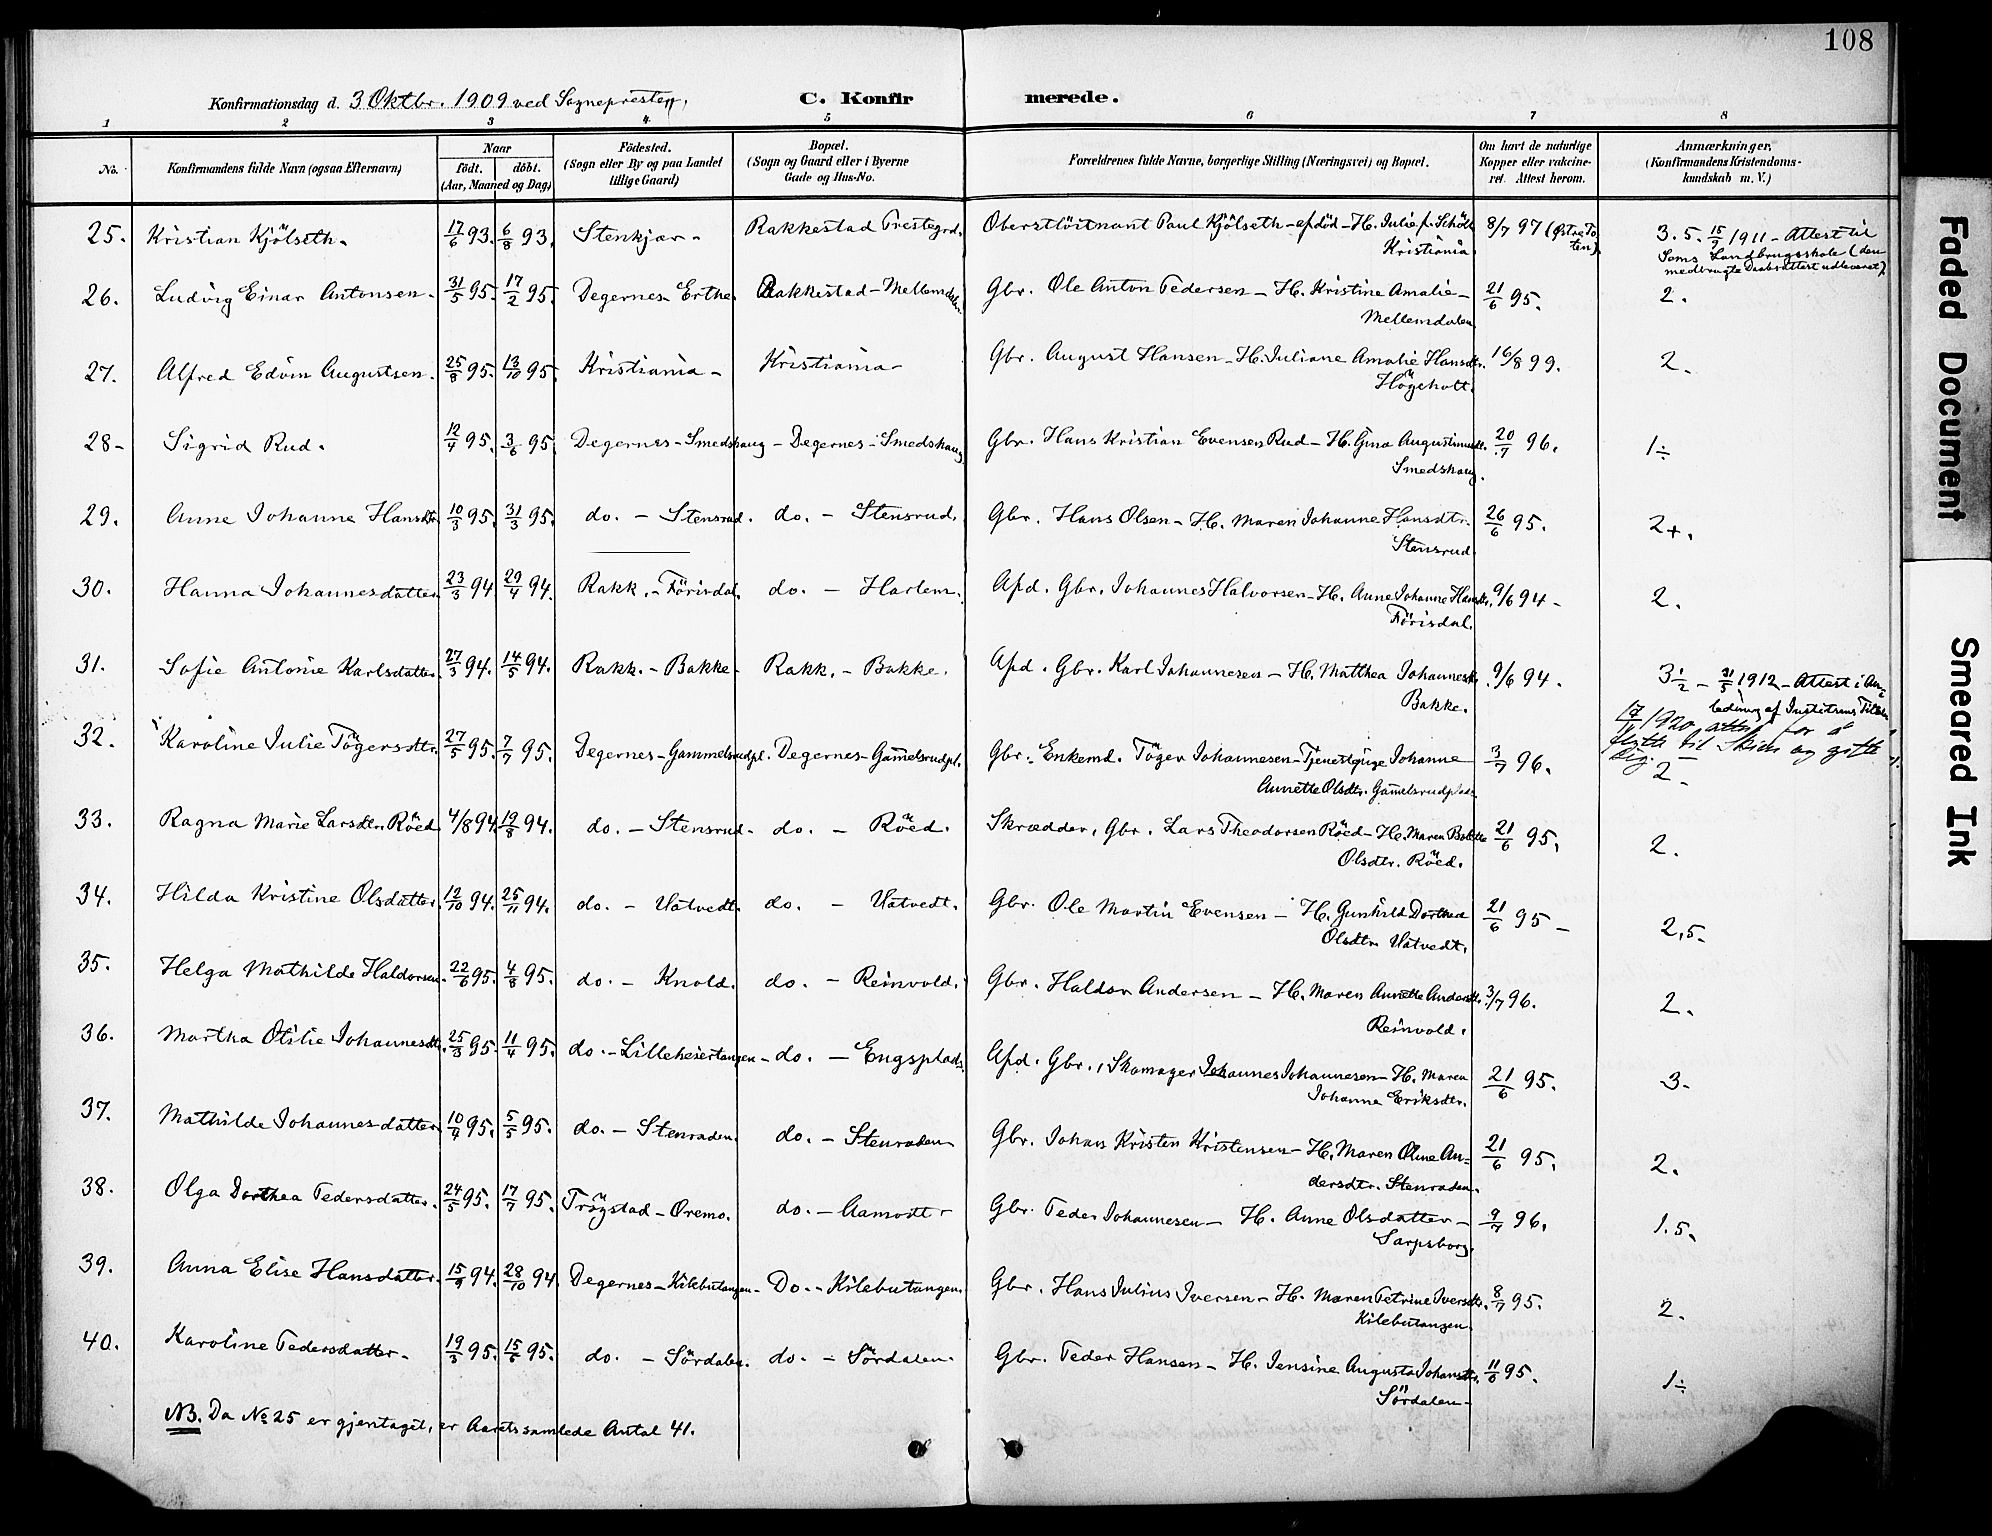 108
Konfirmationsdag d. 3 Oktbr. 1909 ved Sognepresten,
C. Konfirmerede.
1 2 3 4 5 6 7 8
No.
Konfirmandens fulde Navn (ogsaa Efternavn)
Naar
födt. döbt.
(Aar, Maaned og Dag)
Födested.
(Sogn eller By og paa Landet
tillige Gaard)
Bopæl.
(Sogn og Gaard eller i Byerne
Gade og Hus-No.
Forældrenes fulde Navne, borgerlige Stilling (Næringsvei) og Bopæl.
Om havt de naturlige
Kopper eller vakcine-
ret. Attest herom.
Anmærkninger.
(Konfirmandens Kristendoms-
kundskab m. V.)
25. Kristian Kjölseth. 17/6 93. 6/8 93. Stenkjær. Rakkestad Prestegrd. Oberstlöitnant Paul Kjölseth - afdöd - H. Julie f. Schöth Kristiania. 8/7 97 (Østre Toten). 3.5. 15/9 1911 - Attest til
Sems Landbrugsskole (den
medbragte Daabsattest udleveret).
26. Ludvig Einar Antonsen. 31/5 95. 17/2 95. Degernes - Erthe. Rakkestad - Mellemdalen Gbr. Ole Anton Pedersen - H. Kristine Amalie -
Mellemdalen. 21/6 95. 2.
27. Alfred Edvin Augustsen. 25/8 95. 13/10 95. Kristiania - Kristiania - Gbr. August Hansen - H. Juliane Amalie Hansdtr.
Högeholt. 16/8 99. 2.
28 - Sigrid Rud. 12/4 95. 3/6 95. Degernes - Smedshaug - Degernes - Smedshaug Gbr. Hans Kristian Evensen Rud - H. Gina Augustinusdt.
Smedshaug. 20/7 96. 1÷
29. Anne Johanne Hansdtr. 10/3 95. 31/3 95. do. - Stensrud. do. - Stensrud. Gbr. Hans Olsen - H. Maren Johanne Hansdtr.
Stensrud. 26/6 95. 2+.
30. Hanna Johannesdatter. 23/3 94 29/4 94. Rakk. - Förisdal. do. - Harlem. Afd. Gbr. Johannes Halvorsen - H. Anne Johanne Hansdtr.
Förisdal. 9/6 94 - 2.
31. Sofie Antonie Karlsdatter. 27/3 94. 14/5 94. Rakk. - Bakke - Rakk. - Bakke. Afd. Gbr. Karl Johannesen - H. Matthea Johannesdtr.
Bakke. 9/6 94. 3 1/2 - 31/5 1912 - Attest i An-
ledning af
32. Karoline Julie Tögersdtr. 27/5 95. 7/7 95. Degernes - Gammelsrudpl. Degernes - Gamelsrudpl. Gbr., Enkemd. Töger Johannesen - Tjenestpige Johanne
Annette Olsdtr. Gamelsrudplads 3/7 96. 17/4 1920 attest for å
flytte til Skien og gifte
sig. 2 -
33. Ragna Marie Larsdtr. Röed 4/8 94 19/8 94. do. - Stensrud - do. - Röed. Skrædder, Gbr. Lars Theodorsen Röed - H. Maren Bolette
Olsdtr. Röed. 21/6 95. 2.
34. Hilda Kristine Olsdatter. 12/10 94. 25/11 94. do. - Hatvedt. do. - Hatvedt. Gbr. Ole Martin Evensen - H. Gunhild Dorthea
Olsdtr. Hatvedt. 21/6 95 - 2,5.
35. Helga Mathilde Haldorsen. 22/6 95. 4/8 95. do. - Knold. do. - Reinvold. Gbr. Haldor Andersen - H. Maren Annette Andersdtr.
Reinvold. 3/7 96. 2.
36. Martha Otilie Johannesdtr. 25/3 95. 11/4 95. do. - Lilleheiertangen - do. - Engsplads. Afd. Gbr., Skomager Johannes Johannesen - H. Maren
Johanne Eriksdtr. 21/6 95. 3 -
37. Mathilde Johannesdatter. 10/4 95. 5/5 95. do. - Stenraden. do. - Stenraden - Gbr. Johan Kristen Kristensen - H. Maren Oline An-
dersdtr. Stenraden. 21/6 95. 2.
38. Olga Dorthea Pedersdatter. 24/5 95. 17/7 95. Trögstad - Oremo. do. - Aamodt - Gbr. Peder Johannesen - H. Anne Olsdatter -
Sarpsborg. 9/7 96. 1.5.
39. Anna Elise Hansdatter. 15/9 94. 28/10 94. Degernes - Kilebutangen - Do. - Kilebutangen. Gbr. Hans Julius Iversen - H. Maren Petrine Iversdtr.
Kilebutangen. 8/7 95. 2.
40. Karoline Pedersdatter. 19/3 95. 15/6 95. do. - Sördalen. do. - Sördalen. Gbr. Peder Hansen - H. Jensine Augusta Johansdtr.
Sördalen - 11/6 95. 1÷
NB. Da No 25 er gjentaget, er Aarets samlede Antal 41.
Faded Document
Smeared Ink